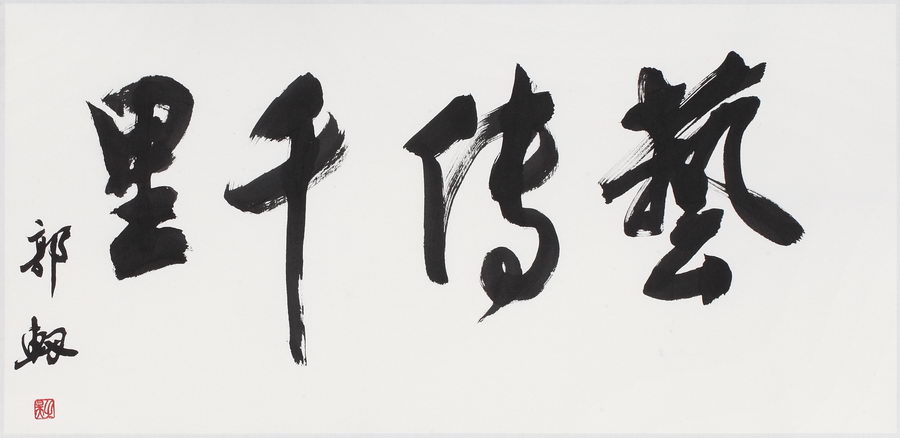 藝傳千里
郭